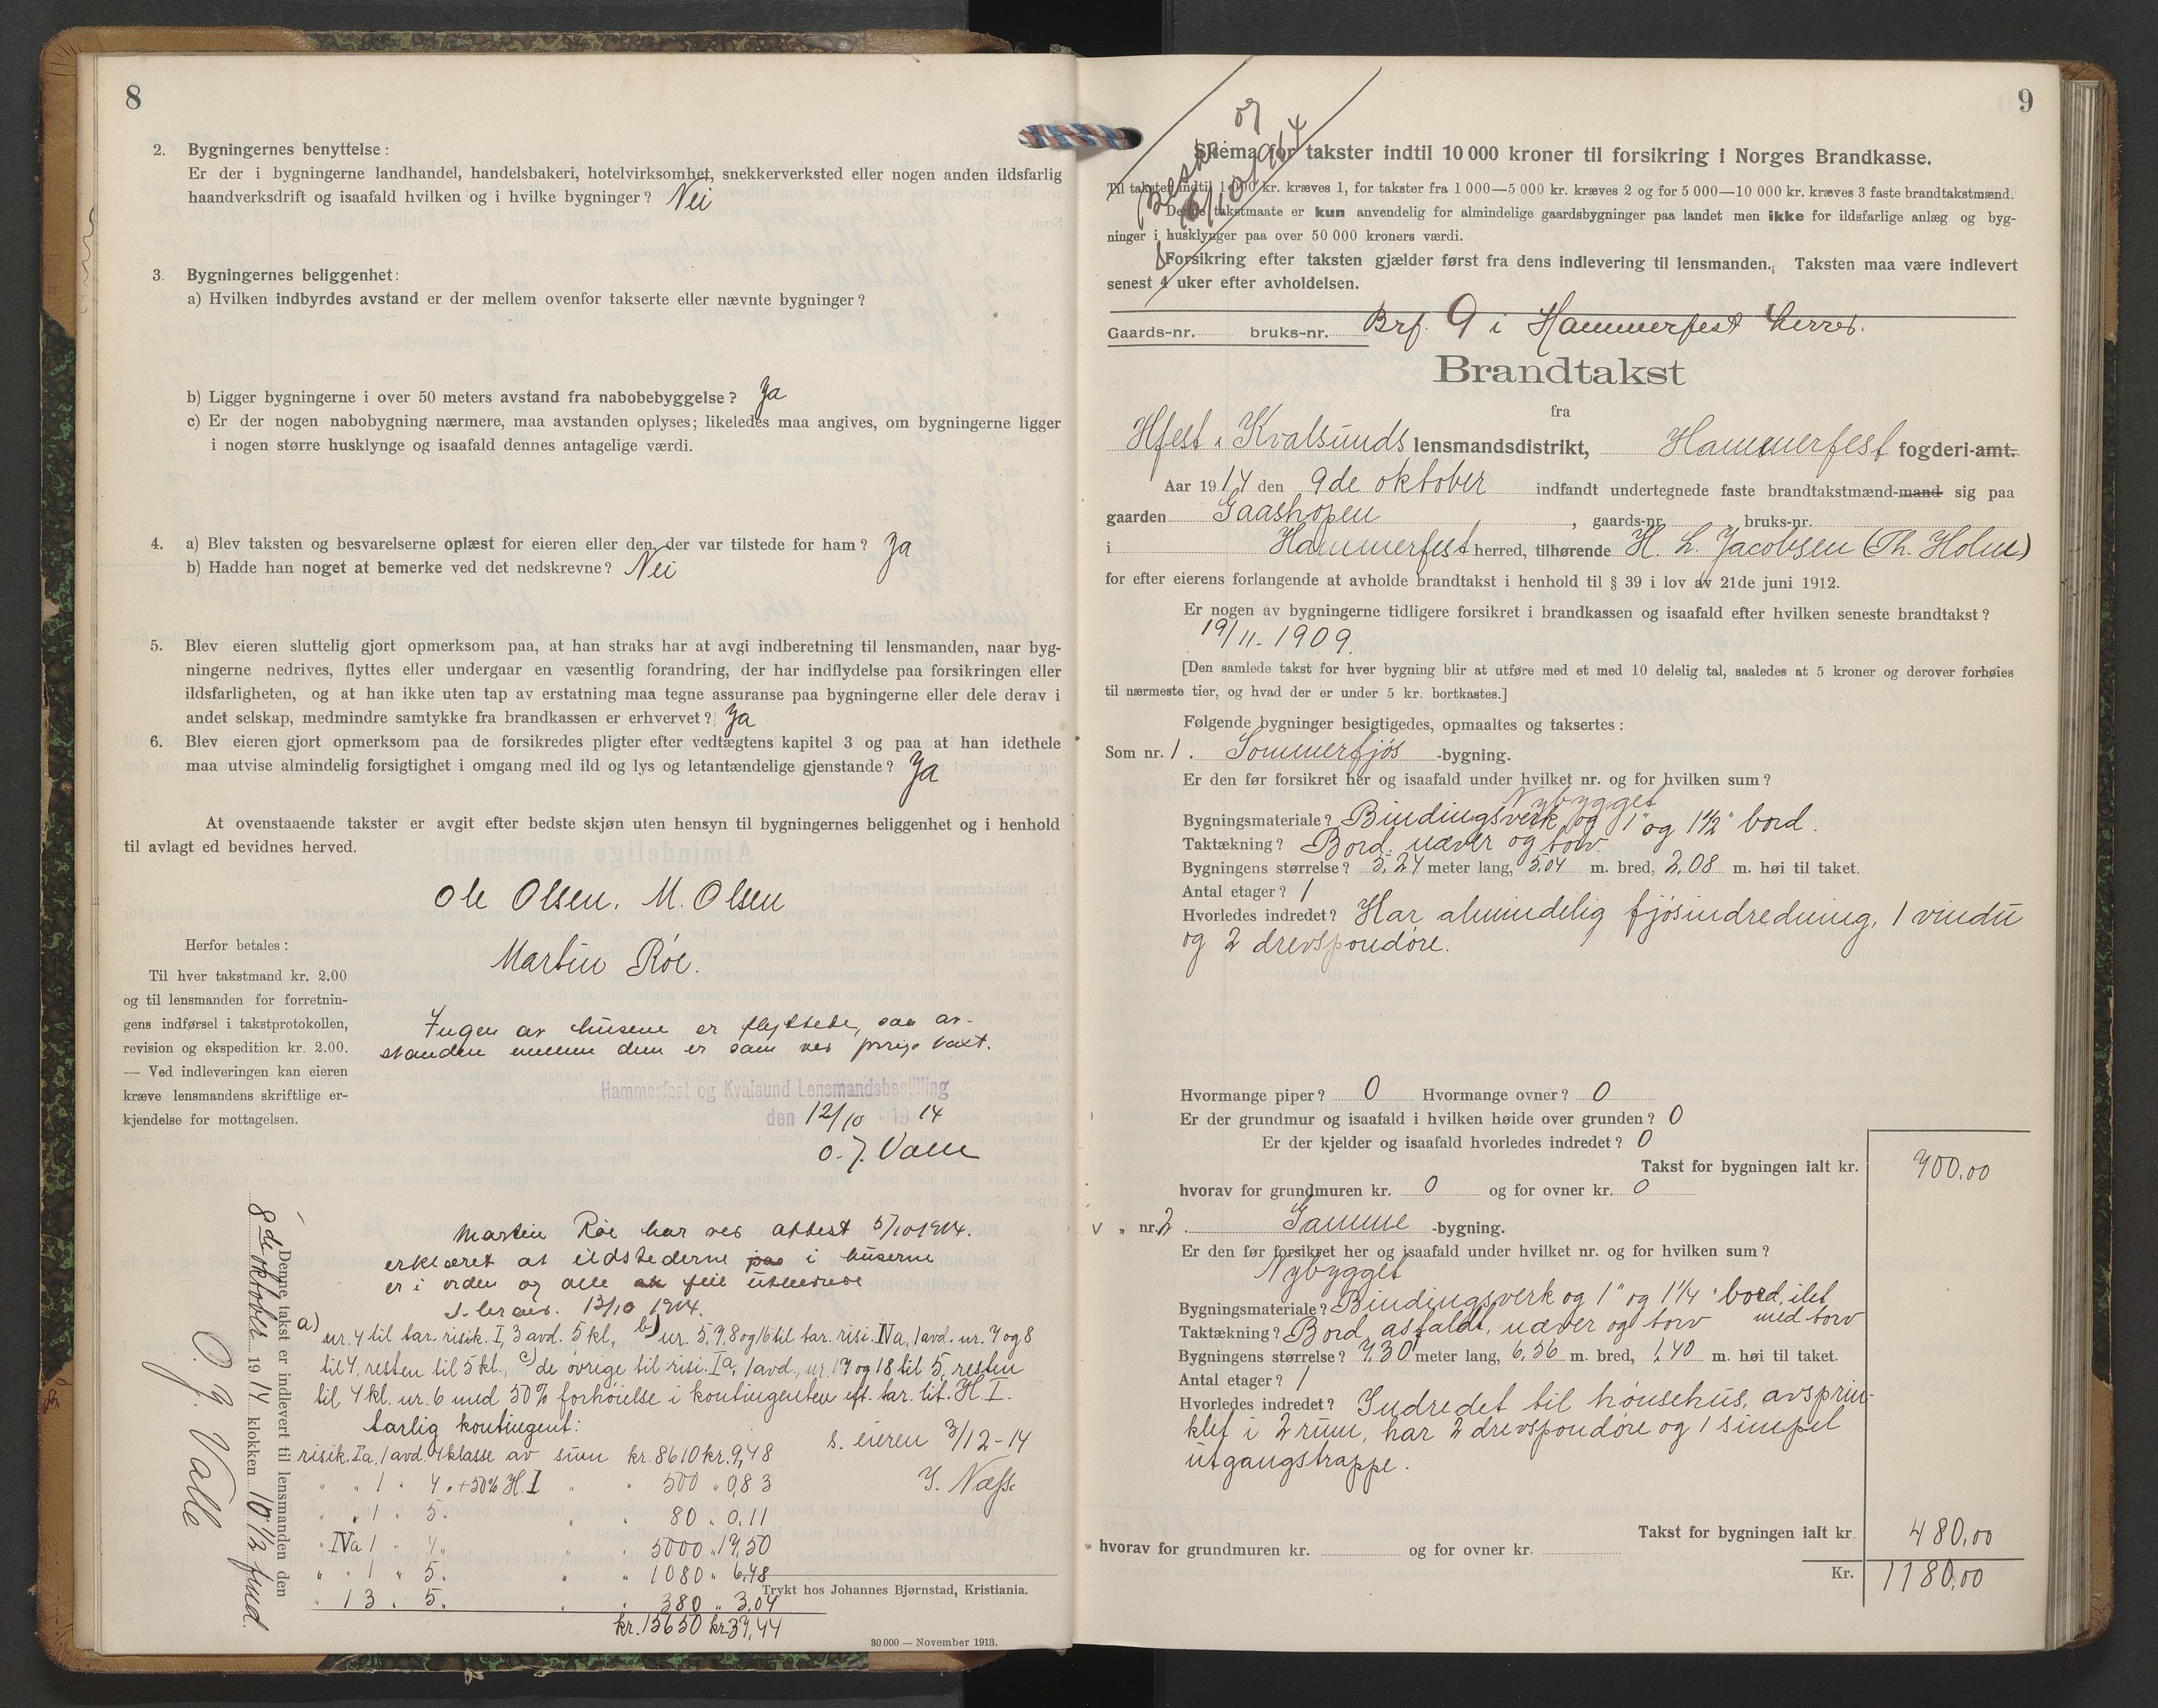 8
2. Bygningernes benyttelse:
Er der i bygningerne landhandel, handelsbakeri, hotelvirksomhet, snekkerverksted eller nogen anden ildsfarlig
haandverksdrift og isaafald hvilken og i hvilke bygninger? Nei
3. Bygningernes beliggenhet:
a) Hvilken indbyrdes avstand er der mellem ovenfor takserte eller nævnte bygninger?
b) Ligger bygningerne i over 50 meters avstand fra nabobebyggelse? Ja
c) Er der nogen nabobygning nærmere, maa avstanden oplyses; likeledes maa angives, om bygningerne ligger
i nogen større husklynge og isaafald dennes antagelige værdi.
4. a) Blev taksten og besvarelserne oplæst for eieren eller den, der var tilstede for ham? Ja
b) Hadde han noget at bemerke ved det nedskrevne? Nei
5. Blev eieren sluttelig gjort opmerksom paa, at han straks har at avgi indberetning til lensmanden, naar byg-
ningerne nedrives, flyttes eller undergaar en væsentlig forandring, der har indflydelse paa forsikringen eller
ildsfarligheten, og at han ikke uten tap av erstatning maa tegne assuranse paa bygningerne eller dele derav i
andet selskap, medmindre samtykke fra brandkassen er erhvervet? Ja
6. Blev eieren gjort opmerksom paa de forsikredes pligter efter vedtægtens kapitel 3 og paa at han idethele
maa utvise almindelig forsigtighet i omgang med ild og lys og letantændelige gjenstande? Ja
At ovenstaaende takster er avgit efter bedste skjøn uten hensyn til bygningernes beliggenhet og i henhold
til avlagt ed bevidnes herved.
Ole Olsen. M. Olsen
Martin Röe.
Herfor betales:
Til hver takstmand kr. 2.00
og til lensmanden for forretnin-
gens indførsel i takstprotokollen,
revision og ekspedition kr. 2.00.
— Ved indleveringen kan eieren
kræve lensmandens skriftlige er-
kjendelse for mottagelsen.
Ingen av husene er flyttede, saa av-
standen mellem dem er som ved forrige taxt.
Hammerfest og Kvalsund Lensmandsbestilling
den 12/10 1914
O. J. Valle
Martin Röe har ved attest 5/10 1914.
erklæret at ildstederne paa i husene
er i orden og alle feil utbedrede
13/10 1914.
a) nr. 4 til tar. risik. I, 3 avd. 5 kl., b) nr. 5, 7, 8 og 16 til tar. risi. IVa, 1 avd. nr. 7 og 8
til 4, resten til 5 kl., c) de övrige til risi. Ia, 1 avd., nr. 17 og 18 til 5, resten
til 4 kl. nr. 6 med 50% forhöielse i kontingenten eft. tar. lit. H I.
Aarlig kontingent:
risik. Ia, 1 avd. 4 klasse av sum kr. 8610 kr. 9,48
" " 1 " 4 " +50% H. I " " 500 " 0,83
" " 1 " 5 " " " 80 " 0.11
" IVa 1 " 4 " " " 5000 " 17,50
" " 1 " 5 " " " 1080 " 6,48
" 1 3 " 5 " " " 380 " 3.04
kr. 15650 kr. 37,44
s. eieren 3/12-14
J. Næss
Denne takst er indlevert til lensmanden den
8de oktober 1914 klokken 10 1/2 fmd.
O. J. Valle
Trykt hos Johannes Bjørnstad, Kristiania.
30 000 — November 1913.
9
Skema for takster indtil 10 000 kroner til forsikring i Norges Brandkasse.
Til takster indtil 1 000 kr. kræves 1, for takster fra 1 000—5 000 kr. kræves 2 og for 5 000—10 000 kr. kræves 3 faste brandtakstmænd.
Denne takstmaate er kun anvendelig for almindelige gaardsbygninger paa landet men ikke for ildsfarlige anlæg og byg-
ninger i husklynger paa over 50 000 kroners værdi.
Forsikring efter taksten gjælder først fra dens indlevering til lensmanden. Taksten maa være indlevert
senest 4 uker efter avholdelsen.
Gaards-nr. bruks-nr. Brf. 9 i Hammerfest herred.
Brandtakst
fra
Hfest i Kvalsunds lensmandsdistrikt, Hammerfest fogderi-amt.
Aar 1914 den 9de oktober indfandt undertegnede faste brandtakstmænd-mand sig paa
gaarden Gaashopen, gaards-nr. bruks-nr.
i Hammerfest herred, tilhørende H. L. Jacobsen (Th. Holm)
for efter eierens forlangende at avholde brandtakst i henhold til § 39 i lov av 21de juni 1912.
Er nogen av bygningerne tidligere forsikret i brandkassen og isaafald efter hvilken seneste brandtakst?
19/11-1909.
[Den samlede takst for hver bygning blir at utføre med et med 10 delelig tal, saaledes at 5 kroner og derover forhøies
til nærmeste tier, og hvad der er under 5 kr. bortkastes.]
Følgende bygninger besigtigedes, opmaaltes og taksertes:
Som nr. 1. Sommerfjös -bygning.
Er den før forsikret her og isaafald under hvilket nr. og for hvilken sum?
Nybygget
Bygningsmateriale? Bindingsverk og 1" og 1 1/2" bord.
Taktækning? Bord, næver og torv.
Bygningens størrelse? 5,24 meter lang, 5,04 m. bred, 2,08 m. høi til taket.
Antal etager? 1
Hvorledes indredet? Har almindelig fjösindredning, 1 vindu
og 2 drevspondöre.
Hvormange piper? 0 Hvormange ovner? 0
Er der grundmur og isaafald i hvilken høide over grunden? 0
Er der kjelder og isaafald hvorledes indredet? 0
Takst for bygningen ialt kr. 700,00
hvorav for grundmuren kr. 0 og for ovner kr. 0
v " nr. 2. Gamme -bygning.
Er den før forsikret her og isaafald under hvilket nr. og for hvilken sum?
Nybygget
Bygningsmateriale? Bindingsverk og 1" og 1 1/4" bord, ilet
med torv
Taktækning? Bord, asfalt, næver og torv
Bygningens størrelse? 7,30 meter lang, 6,56 m. bred, 1,40 m. høi til taket.
Antal etager? 1
Hvorledes indredet? Indredet til hönsehus, avsprin-
klet i 2 rum, har 2 drevspondöre og 1 simpel
utgangstrappe.
Takst for bygningen ialt kr. 480,00
hvorav for grundmuren kr. og for ovner kr.
Kr. 1180,00